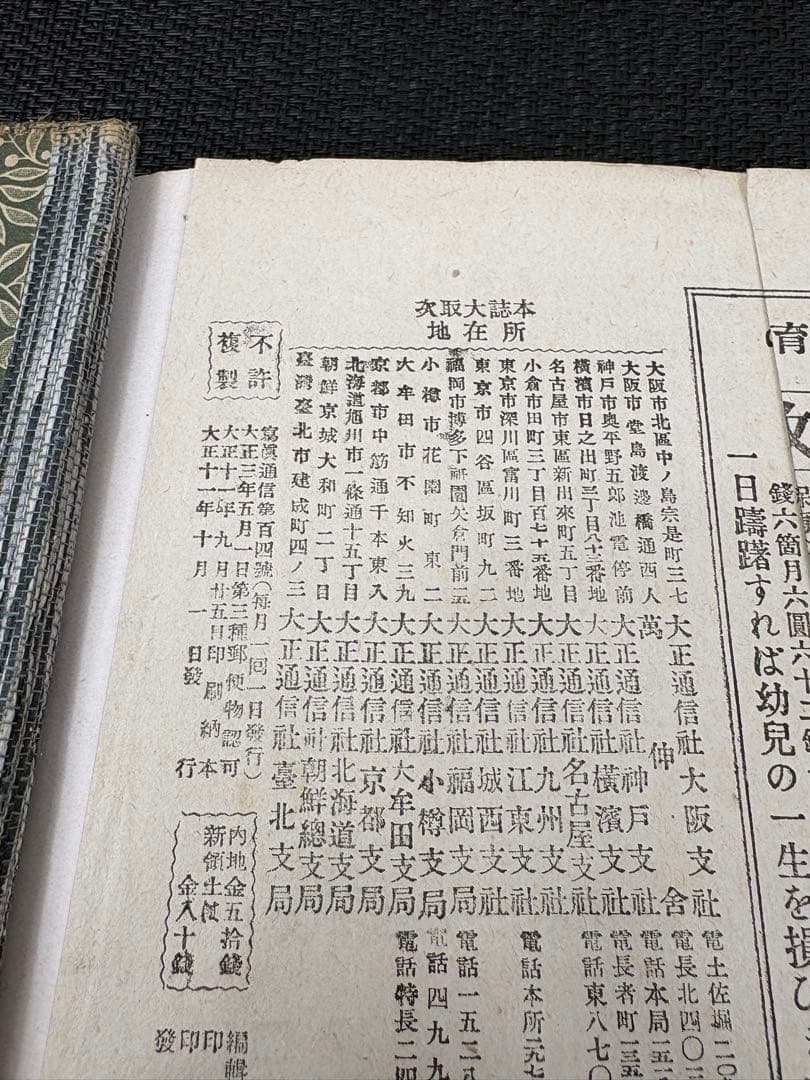 本誌大取次
所在地
大阪市北區中ノ島宗是町三七 大正通信社大阪支社 電土佐堀二〇
大阪市堂島渡邊橋通西入 萬伸舍 電長北四〇三
神戸市奥平野五郎池電停前 大正通信社神戸支社 電話本局一五二
橫濱市日之出町三丁目八十三番地 大正通信社橫濱支社 電長者町一三五
名古屋市東區新出來町五丁目 大正通信社名古屋支社 電話東八七〇
小倉市田町三丁目百七十五番地 大正通信社九州支社
東京市深川區富川町三番地 大正通信社江東支社 電話本所一九七
東京市四谷區坂町九二 大正通信社城西支社
福岡市博多下祇園矢倉門前五 大正通信社福岡支局 電話一五二八
小樽市花園町東二 大正通信社小樽支局 電話四九九
大牟田市不知火三九 大正通信社大牟田支局 電話特長二四
京都市中筋通千本東入 大正通信社京都支局
北海道旭川市一條通十五丁目 大正通信社北海道支局
朝鮮京城大和町二丁目 大正通信社朝鮮總支局
臺灣臺北市建成町四ノ三 大正通信社臺北支局
不許
複製
寫眞通信第百四號(每月一回一日發行)
大正三年五月一日第三種郵便物認可
大正十一年九月廿五日印刷納本
大正十一年十月一日發行
內地金五拾錢
新領土似金八十錢
編輯
印
印
發
育
錢六箇月六圓六十二錢
一日躊躇すれば幼兒の一生を損ひ